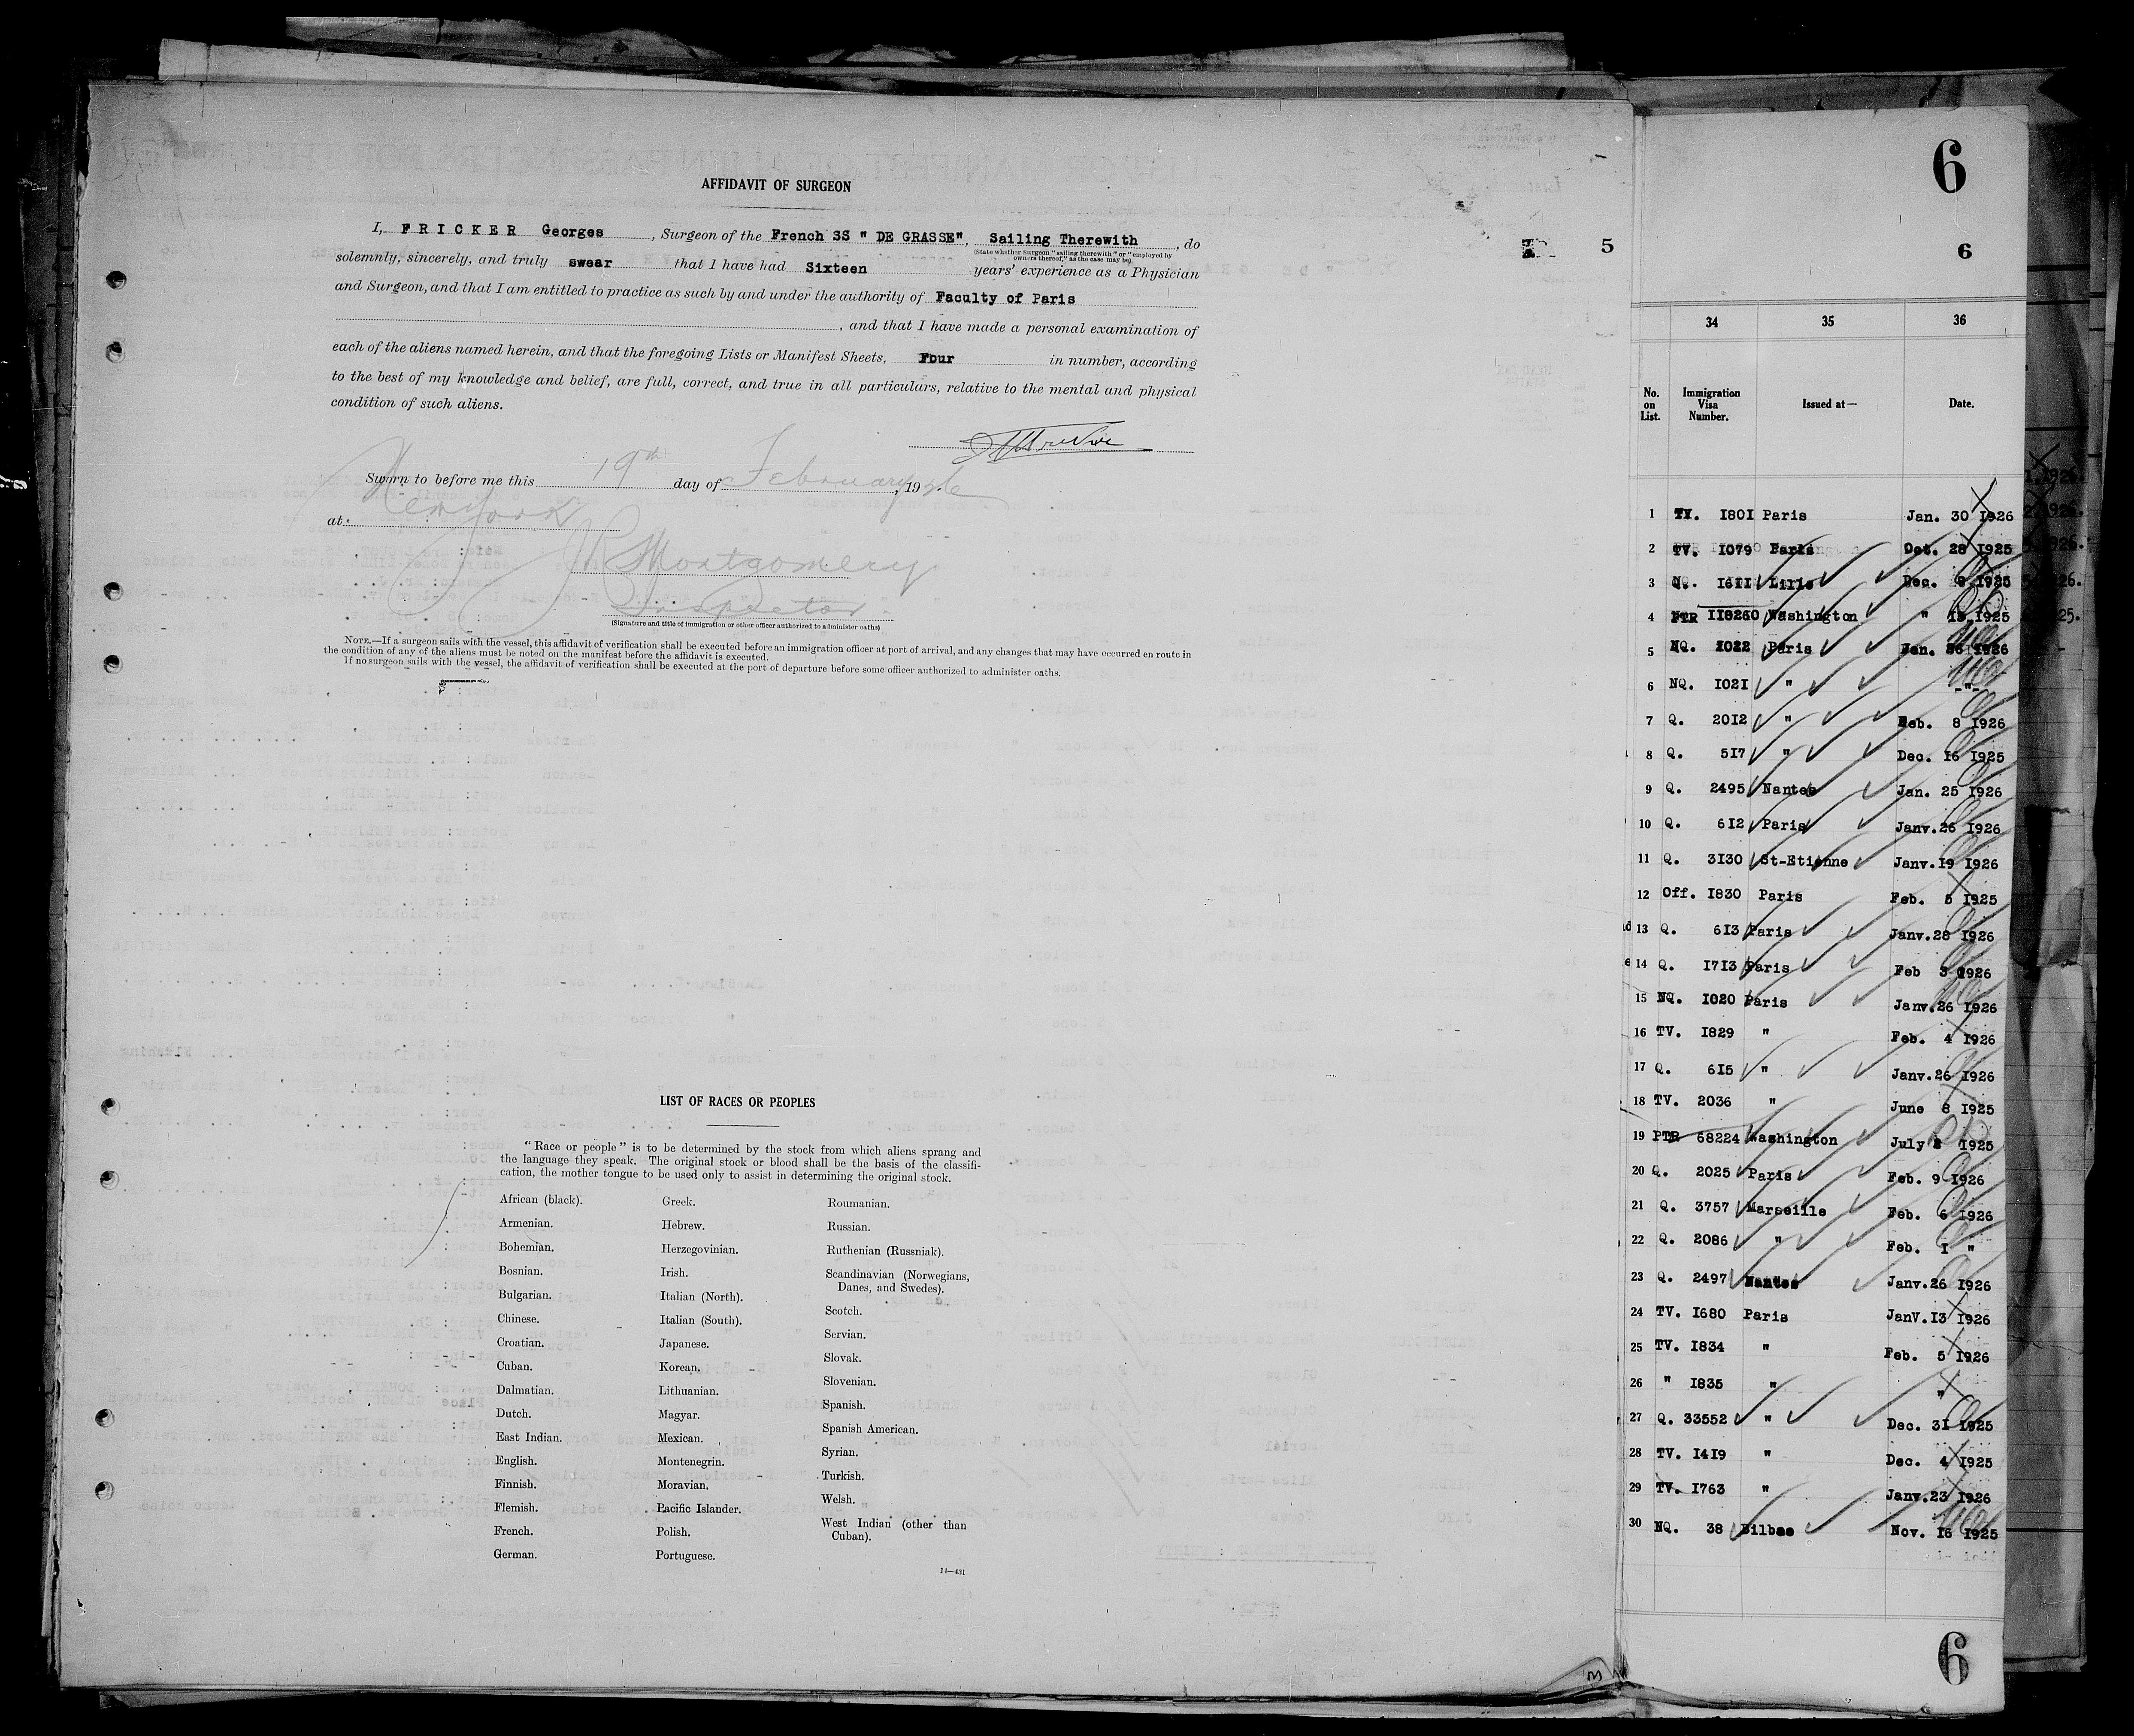 AFFIDAVIT OF SURGEON
I, FRICKER Georges, Surgeon of the French SS " DE GRASSE", Sailing Therewith, do
(State whether Surgeon "sailing therewith" or "employed by
owners thereof," as the case may be)
solemnly, sincerely, and truly swear that I have had Sixteen years' experience as a Physician
and Surgeon, and that I am entitled to practice as such by and under the authority of Faculty of Paris
, and that I have made a personal examination of
each of the aliens named herein, and that the foregoing Lists or Manifest Sheets, Four in number, according
to the best of my knowledge and belief, are full, correct, and true in all particulars, relative to the mental and physical
condition of such aliens.
Sworn to before me this 19th day of February, 1926
at New York
Montgomery
Inspector
(Signature and title of immigration or other officer authorized to administer oaths)
NOTE.—If a surgeon sails with the vessel, this affidavit of verification shall be executed before an immigration officer at port of arrival, and any changes that may have occurred en route in
the condition of any of the aliens must be noted on the manifest before the affidavit is executed.
If no surgeon sails with the vessel, the affidavit of verification shall be executed at the port of departure before some officer authorized to administer oaths.
LIST OF RACES OR PEOPLES
"Race or people" is to be determined by the stock from which aliens sprang and
the language they speak. The original stock or blood shall be the basis of the classifi-
cation, the mother tongue to be used only to assist in determining the original stock.
African (black).
Armenian.
Bohemian.
Bosnian.
Bulgarian.
Chinese.
Croatian.
Cuban.
Dalmatian.
Dutch.
East Indian.
English.
Finnish.
Flemish.
French.
German.
Greek.
Hebrew.
Herzegovinian.
Irish.
Italian (North).
Italian (South).
Japanese.
Korean.
Lithuanian.
Magyar.
Mexican.
Montenegrin.
Moravian.
Pacific Islander.
Polish.
Portuguese.
Roumanian.
Russian.
Ruthenian (Russniak).
Scandinavian (Norwegians,
Danes, and Swedes).
Scotch.
Servian.
Slovak.
Slovenian.
Spanish.
Spanish American.
Syrian.
Turkish.
Welsh.
West Indian (other than
Cuban).
14—431
5
3
6
6
34 35 36
No.
on
List.
Immigration
Visa
Number.
Issued at—
Date.
1 TV. 1801 Paris Jan. 30 1926
2 TV. 1079 Paris Oct. 28 1925
3 Q. 1611 Lille Dec. 9 1925
4 PTR Washington " 15 1925
5 NQ. 1022 Paris Jan. 26 1926
6 NQ. 1021 " -"-
7 Q. 2012 " Feb. 8 1926
8 Q. 517 " Dec. 16 1925
9 Q. 2495 Nantes Jan. 25 1926
10 Q. 612 Paris Janv.26 1926
11 Q. 3130 St-Etienne Janv.19 1926
12 Off. 1830 Paris Feb. 5 1925
13 Q. 613 Paris Janv.28 1926
14 Q. 1713 Paris Feb 3 1926
15 NQ. 1020 Paris Janv.26 1926
16 TV. 1829 " Feb. 4 1926
17 Q. 615 " Janv.26 1926
18 TV. 2036 " June 8 1925
19 PTR 68224 Washington July 2 1925
20 Q. 2025 Paris Feb. 9 1926
21 Q. 3757 Marseille Feb. 6 1926
22 Q. 2086 " Feb. 1 "
23 Q. 2497 Nantes Janv.26 1926
24 TV. 1680 Paris JanV.13 1926
25 TV. 1834 " Feb. 5 1926
26 " 1835 " "
27 Q. 33552 " Dec. 31 1925
28 TV. 1419 " Dec. 4 1925
29 TV. 1763 " Janv.23 1926
30 NQ. 38 Bilbao Nov. 16 1925
6